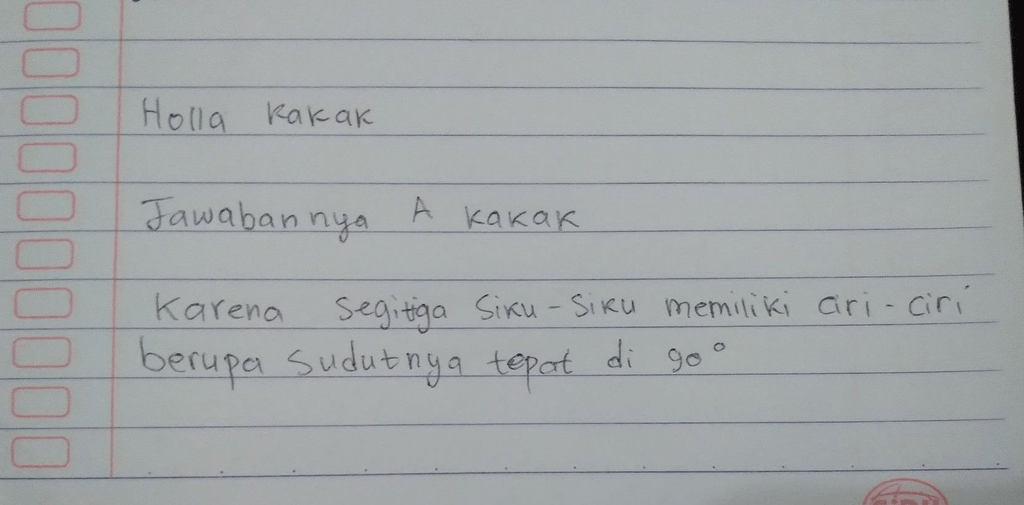 Holla kakak
Jawabannya A kakak
Karena segitiga siku-siku memiliki ciri-ciri
berupa sudutnya tepat di 90°